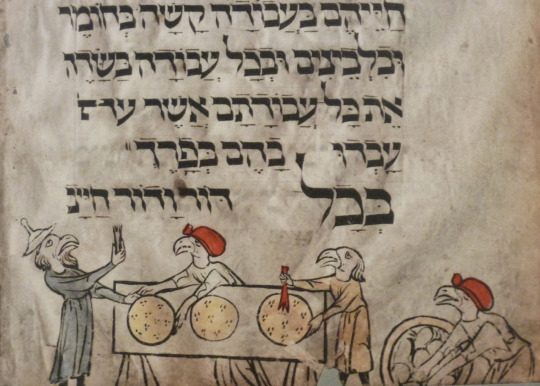 חייהם בעבודה קשה בחומר
ובלבינים ובכל עבודה בשדה
את כל עבודתם אשר
עבדו בהם בפרך
בכל דור ודור חייב